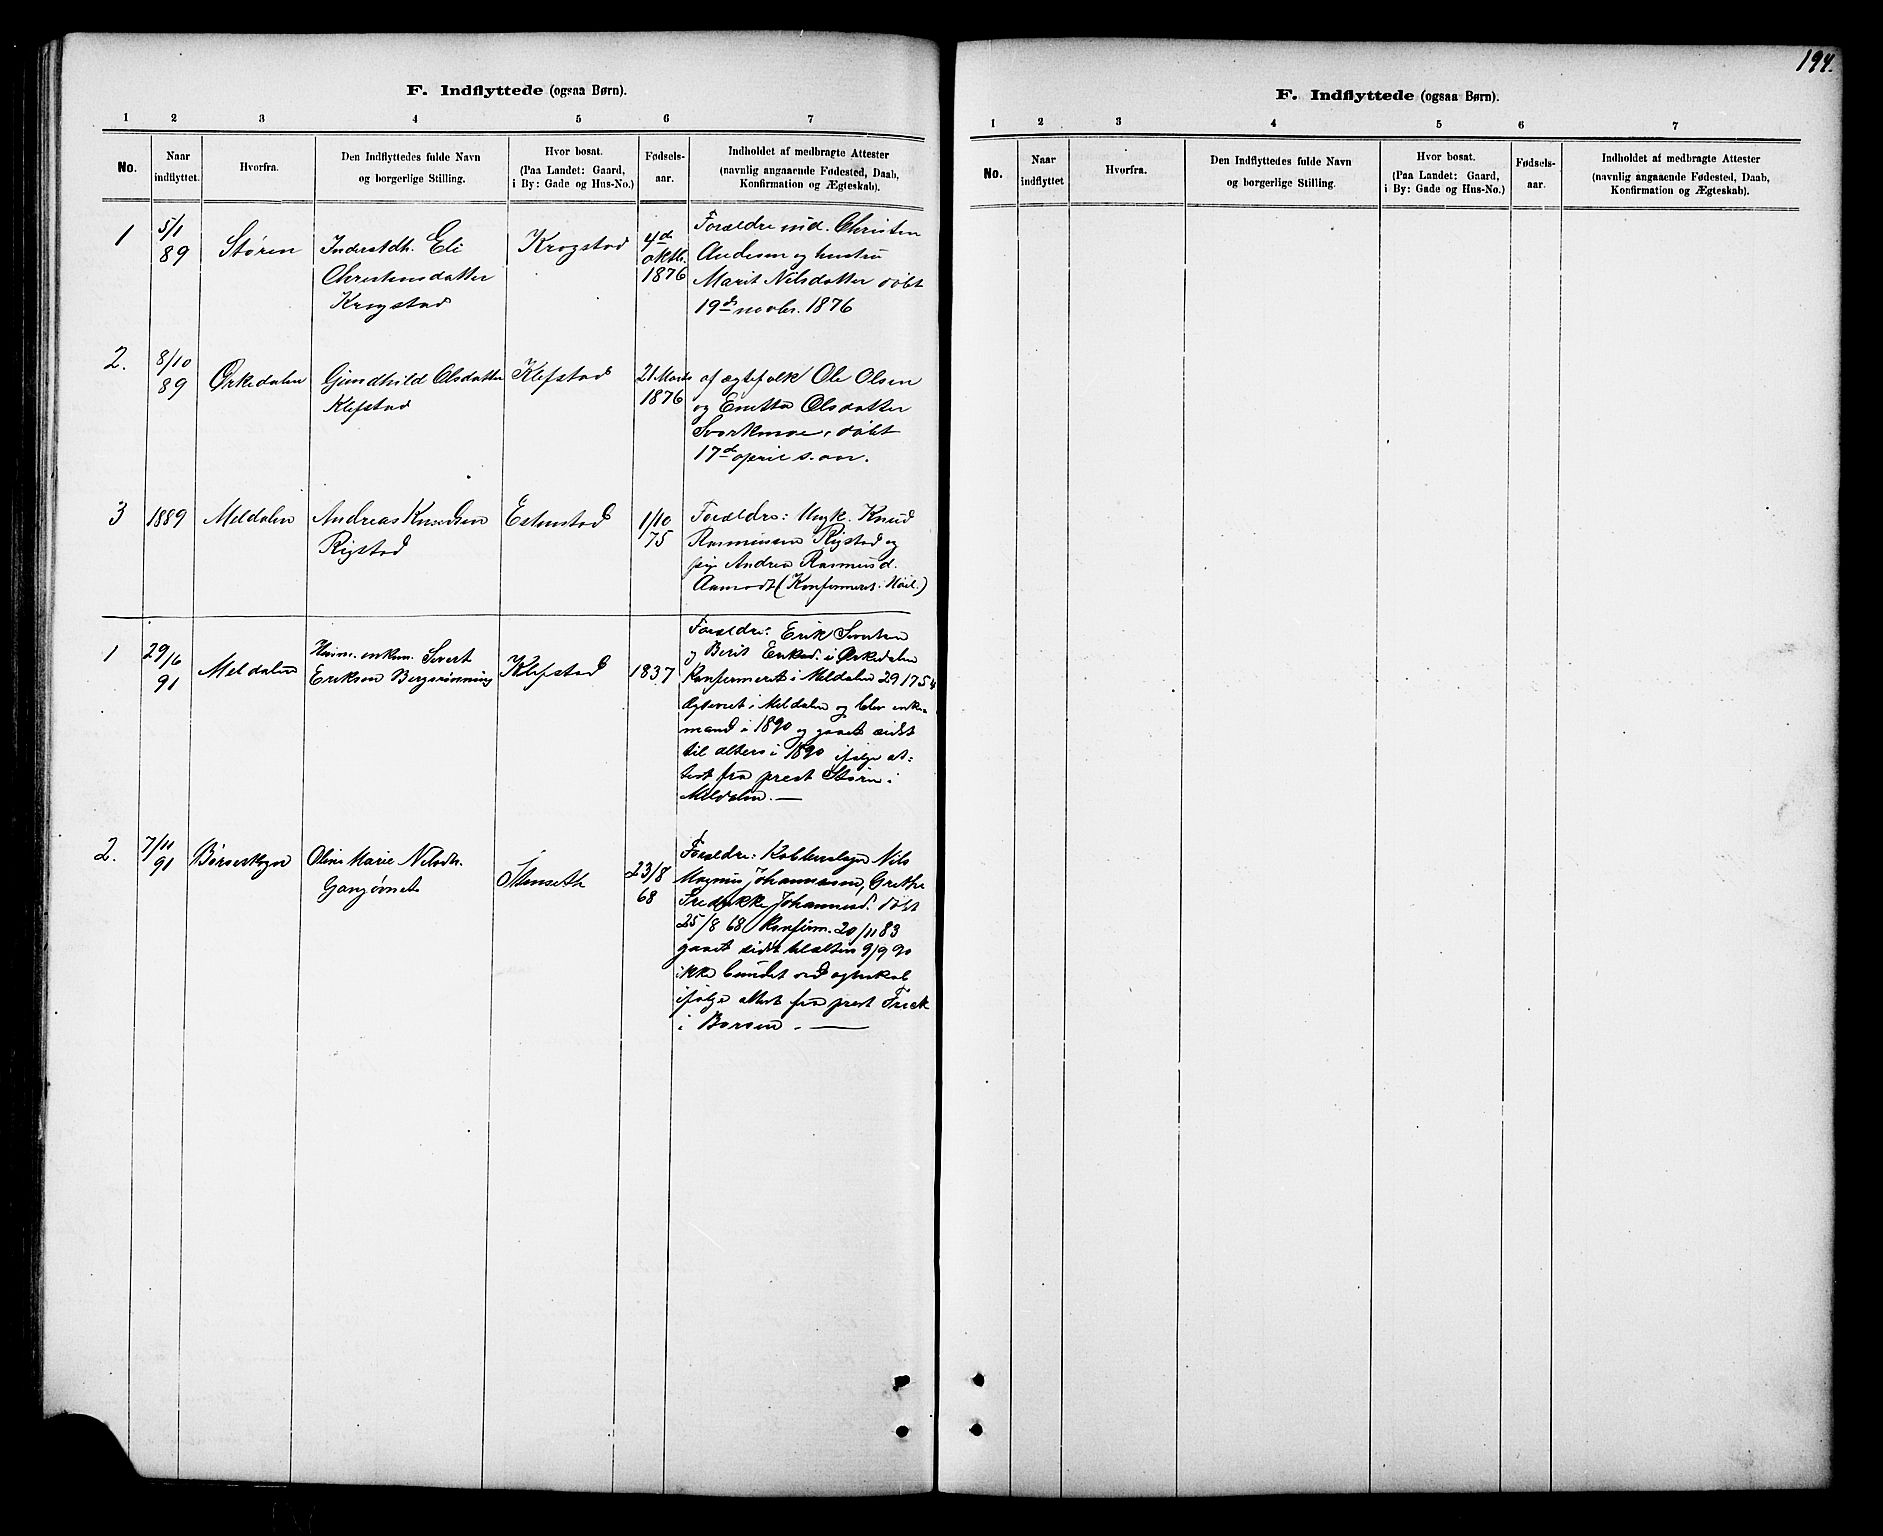 194.
F. Indflyttede (ogsaa Børn).
1 2 3 4 5 6 7
No. Naar indflyttet. Hvorfra. Den Indflyttedes fulde Navn og borgerlige Stilling. Hvor bosat. (Paa Landet: Gaard, i By: Gade og Hus-No.) Fødsels-aar. Indholdet af medbragte Attester (navnlig angaaende Fødested, Daab, Konfirmation og Ægteskab).
1 5/1 89 Støren
Inderstdh. Eli
Christensdatter
Krogstad
Krogstad
4d
oktb.
1876
Forældre ind. Christen
Andersen og hustru
Marit Nilsdatter døbt
19d novbr. 1876
2. 8/10 89 Ørkedalen
Gundhild Olsdatter
Klefstad
Klefstad
21 Marts
1876
af ægtefolk Ole Olsen
og Olsdatter
Svorkmoe, døbt
17d april s. aar.
3 1889 Meldalen
Andreas Knudsen
Rigstad
Estenstad
1/10
75
Forældre: Ungk. Knud
Rasmussen Rigstad og
pige Andrea Rasmusd.
Aamodt (Konfirmeret i Høil.)
1 29/6 91 Meldalen
enkem. Sivert
Erikson Bergsrønning
Klefstad
1837
Forældre: Erik Sivertsen
og Berit Eriksd. i Ørkedalen
Konfirmeret i Meldalen 29 1754
Ægteviet i Meldalen og blev enke-
mand i 1890 og gaaet sidst
til alters i 1890 ifølge at-
test fra prest Støren i
Meldalen. —
2. 7/11 91 Børseskogn
Oline Marie Nilsdtr.
Stenseth
23/8
68
Forældre: Nils
Magnus Johannessen, Grethe
Fredrikke Johannesd. døbt
25/8 68 Konfirm. 20/11 83
gaaet sidst til alters 9/9 90
ikke bundet ved egteskab
ifølge attest fra prest Frick
i Børsen. —
F. Indflyttede (ogsaa Børn).
1 2 3 4 5 6 7
No. Naar indflyttet Hvorfra. Den Indflyttedes fulde Navn og borgerlige Stilling. Hvor bosat. (Paa Landet: Gaard, i By: Gade og Hus-No.) Fødsels-aar. Indholdet af medbragte Attester (navnlig angaaende Fødested, Daab, Konfirmation og Ægteskab).